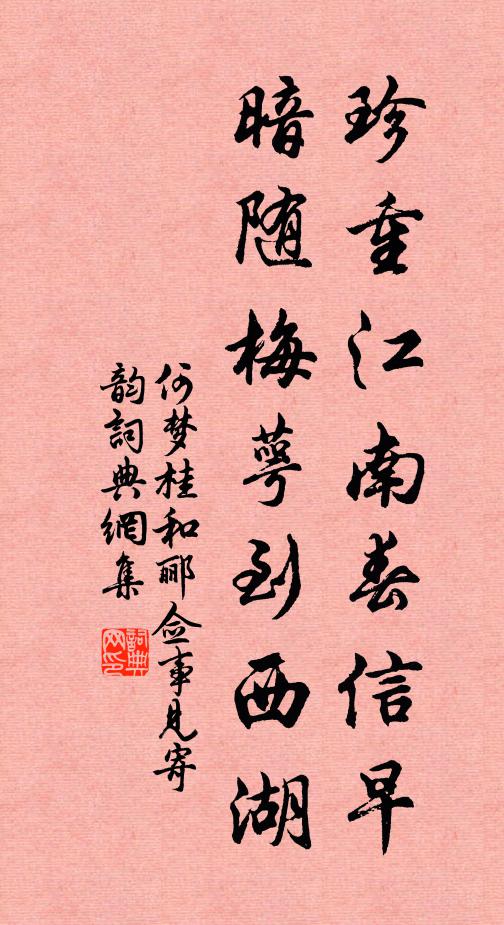 珍重江南春信早
暗随梅萼到西湖
何梦桂和郦佥事见寄
韵詞典網集
詞典网印